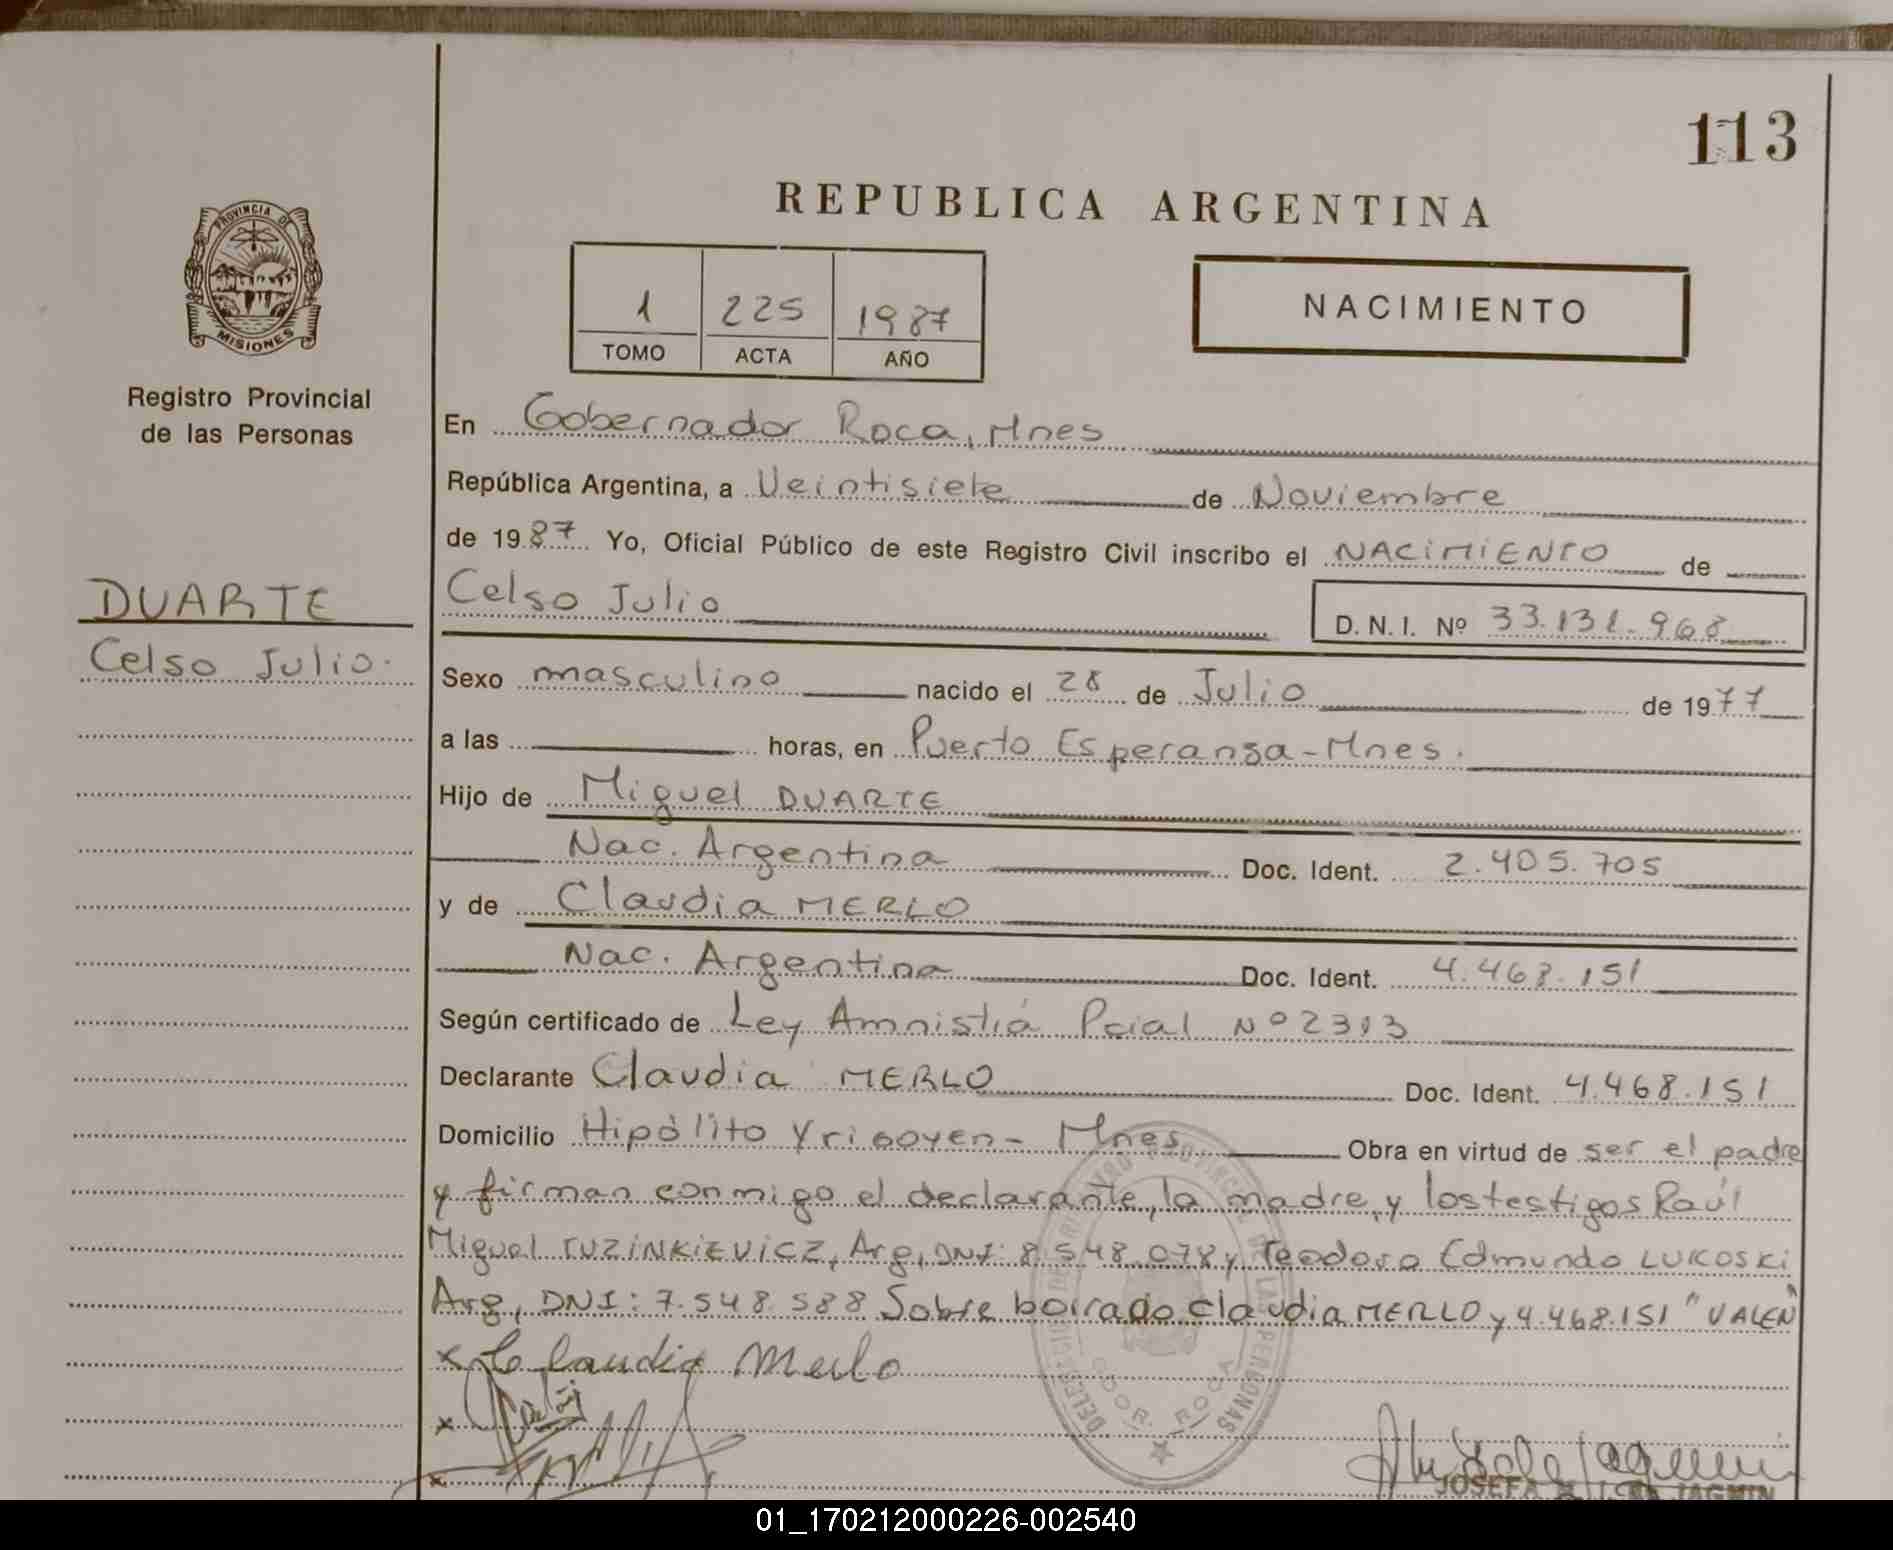 113
REPUBLICA ARGENTINA
PROVINCIA DE
MISIONES
Registro Provincial
de las Personas
1 225 1987
TOMO ACTA AÑO
NACIMIENTO
En Gobernador Roca, Mnes
República Argentina, a Veintisiete de Noviembre
de 1987 Yo, Oficial Público de este Registro Civil inscribo el NACIMIENTO de
DUARTE
Celso Julio.
Celso Julio D.N.I. Nº 33.131.968
Sexo masculino nacido el 28 de Julio de 1977
a las horas, en Puerto Esperanza-Mnes.
Hijo de Miguel DUARTE
Nac. Argentina Doc. Ident. 2.405.705
y de Claudia MERLO
Nac. Argentina Doc. Ident. 4.468.151
Según certificado de Ley Amnistiá Pcial Nº 2313
Declarante Claudia MERLO Doc. Ident. 4.468.151
Domicilio Hipólito Yrigoyen- Mnes Obra en virtud de ser el padre
y firman conmigo el declarante, la madre, y los testigos Raúl
Miguel TUZINKIEVICZ, Arg, DNI: 8.548.078 y Teodoro Edmundo LUKOSKI
Arg, DNI: 7.548.588 Sobre borrado claudia MERLO y 4.468.151 "VALEN"
x Claudia Merlo
x
x
GDOR. ROCA
01_170212000226-002540